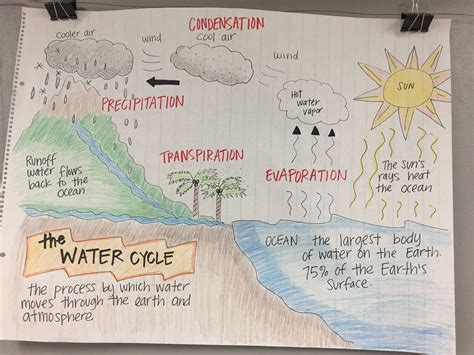 CONDENSATION
cooler air
wind
Cool air
wind
PRECIPITATION
Hot
water
vapor
SUN
Runoff
water flows
back to the
ocean
TRANSPIRATION
EVAPORATION
The Sun's
rays heat
the ocean
the
WATER CYCLE
the process by which water
moves through the earth and
atmosphere
OCEAN the largest body
of water on the Earth.
75% of the Earth's
Surface.